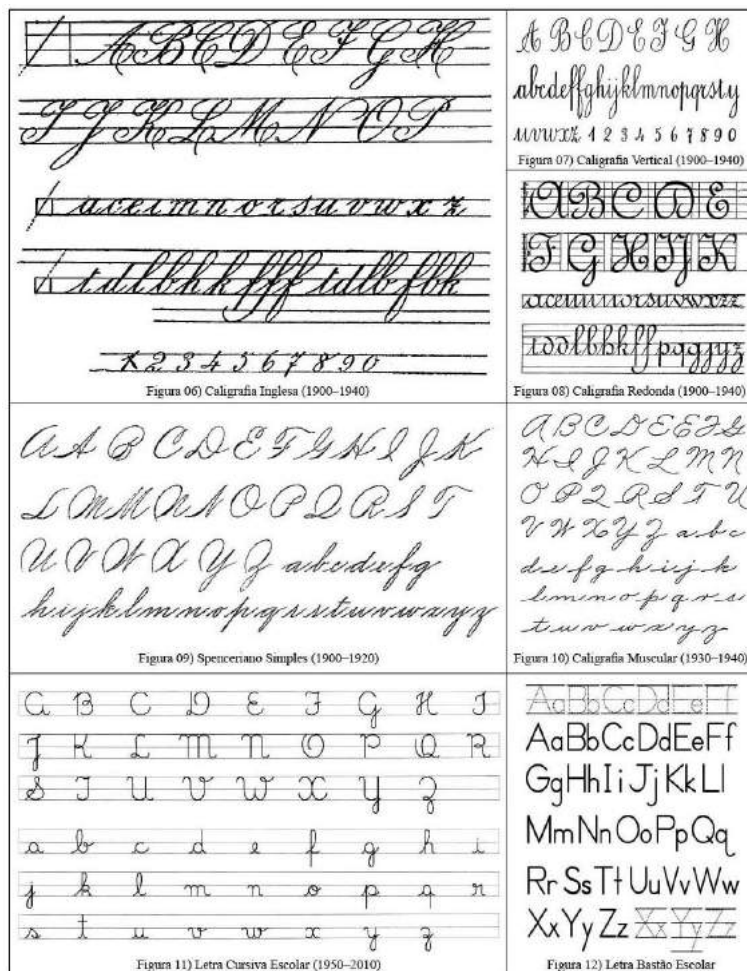 A B C D E F G H
I J K L M N O P
a c e i m n o r s u v w x z
t d l b h k f f f t d l b f b k
1 2 3 4 5 6 7 8 9 0
Figura 06) Caligrafia Inglesa (1900–1940)
A B C D E F G H
abcdeffghijklmnopqrsty
uvwxz 1 2 3 4 5 6 7 8 9 0
Figura 07) Caligrafia Vertical (1900–1940)
A B C D E
F G H I J K
aceimnorsuvwxzz
tddlbhkffpqgjyz
Figura 08) Caligrafia Redonda (1900–1940)
A A B C D E F G H I J K
L M M N N O P Q R S T
U V W X Y Z a b c d e f g
h i j k l m n o p q r s t u v w x y z
Figura 09) Spenceriano Simples (1900–1920)
A B C D E E F G
H I J K L M N
O P Q R S T U
V W X Y Z a b c
d e f g h i j k
l m n o p q r s
t u v w x y z
Figura 10) Caligrafia Muscular (1930–1940)
A B C D E F G H I
J K L M N O P Q R
S T U V W X Y Z
a b c d e f g h i
j k l m n o p q r
s t u v w x y z
Figura 11) Letra Cursiva Escolar (1950–2010)
Aa Bb Cc Dd Ee Ff
Aa Bb Cc Dd Ee Ff
Gg Hh Ii Jj Kk Ll
Mm Nn Oo Pp Qq
Rr Ss Tt Uu Vv Ww
Xx Yy Zz Xx Yy Zz
Figura 12) Letra Bastão Escolar